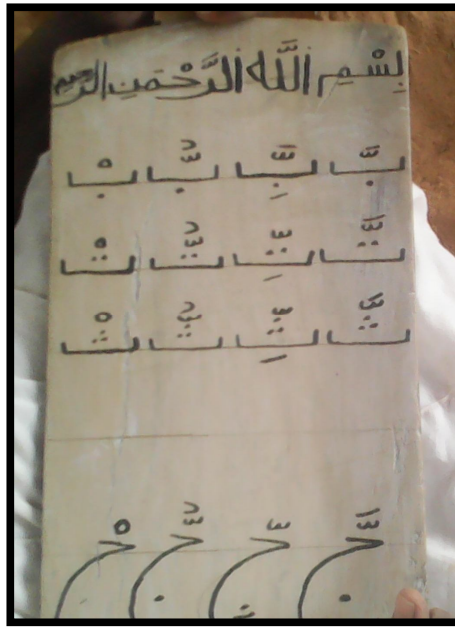 بِسْمِ اللَّهِ الرَّحْمَنِ الرَّحِيمِ
بَّ بِّ بُّ بْ
تَّ تِّ تُّ تْ
ثَّ ثِّ ثُّ ثْ
جَّ جِّ جُّ